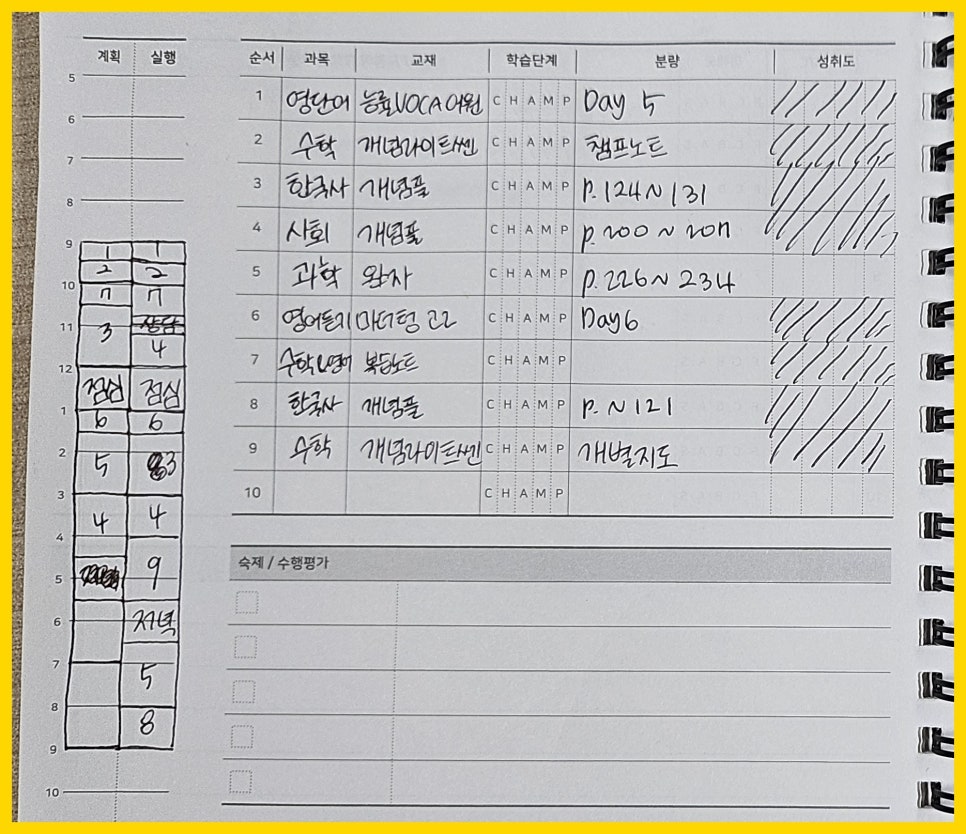 계획 실행
순서 과목 교재 학습단계 분량 성취도
1 영단어 능률VOCA어원 C H A M P Day 5
2 수학 개념라이트쎈 C H A M P 챔프노트
3 한국사 개념풀 C H A M P p.124~131
4 사회 개념풀 C H A M P p.200~207
5 과학 완자 C H A M P p.226~234
6 영어듣기 마더텅 고2 C H A M P Day6
7 수학&영어 복습노트 C H A M P
8 한국사 개념풀 C H A M P p.~121
9 수학 개념라이트쎈 C H A M P 개별지도
10 C H A M P
숙제 / 수행평가
5
6
7
8
9 1 1
2 2
10 7 7
11 3 상담
4
12 점심 점심
1 6 6
2 5 3
3 4 4
4
5 9
6 저녁
7 5
8 8
9
10